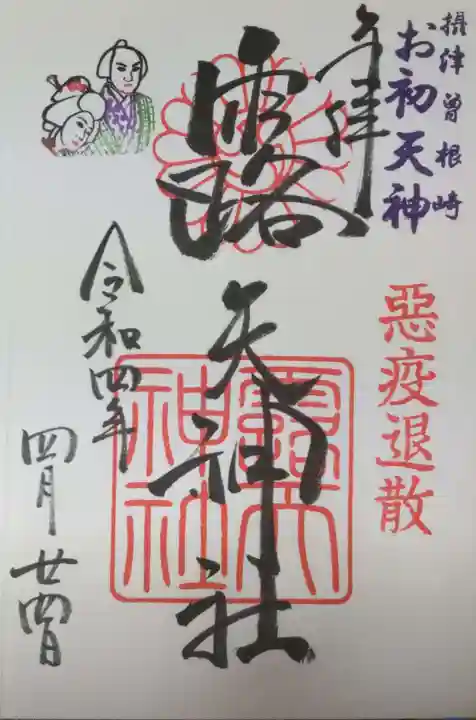 摂津曽根崎
お初天神
奉拝
惡疫退散
露天神社
露天神社
令和四年
四月廿四日